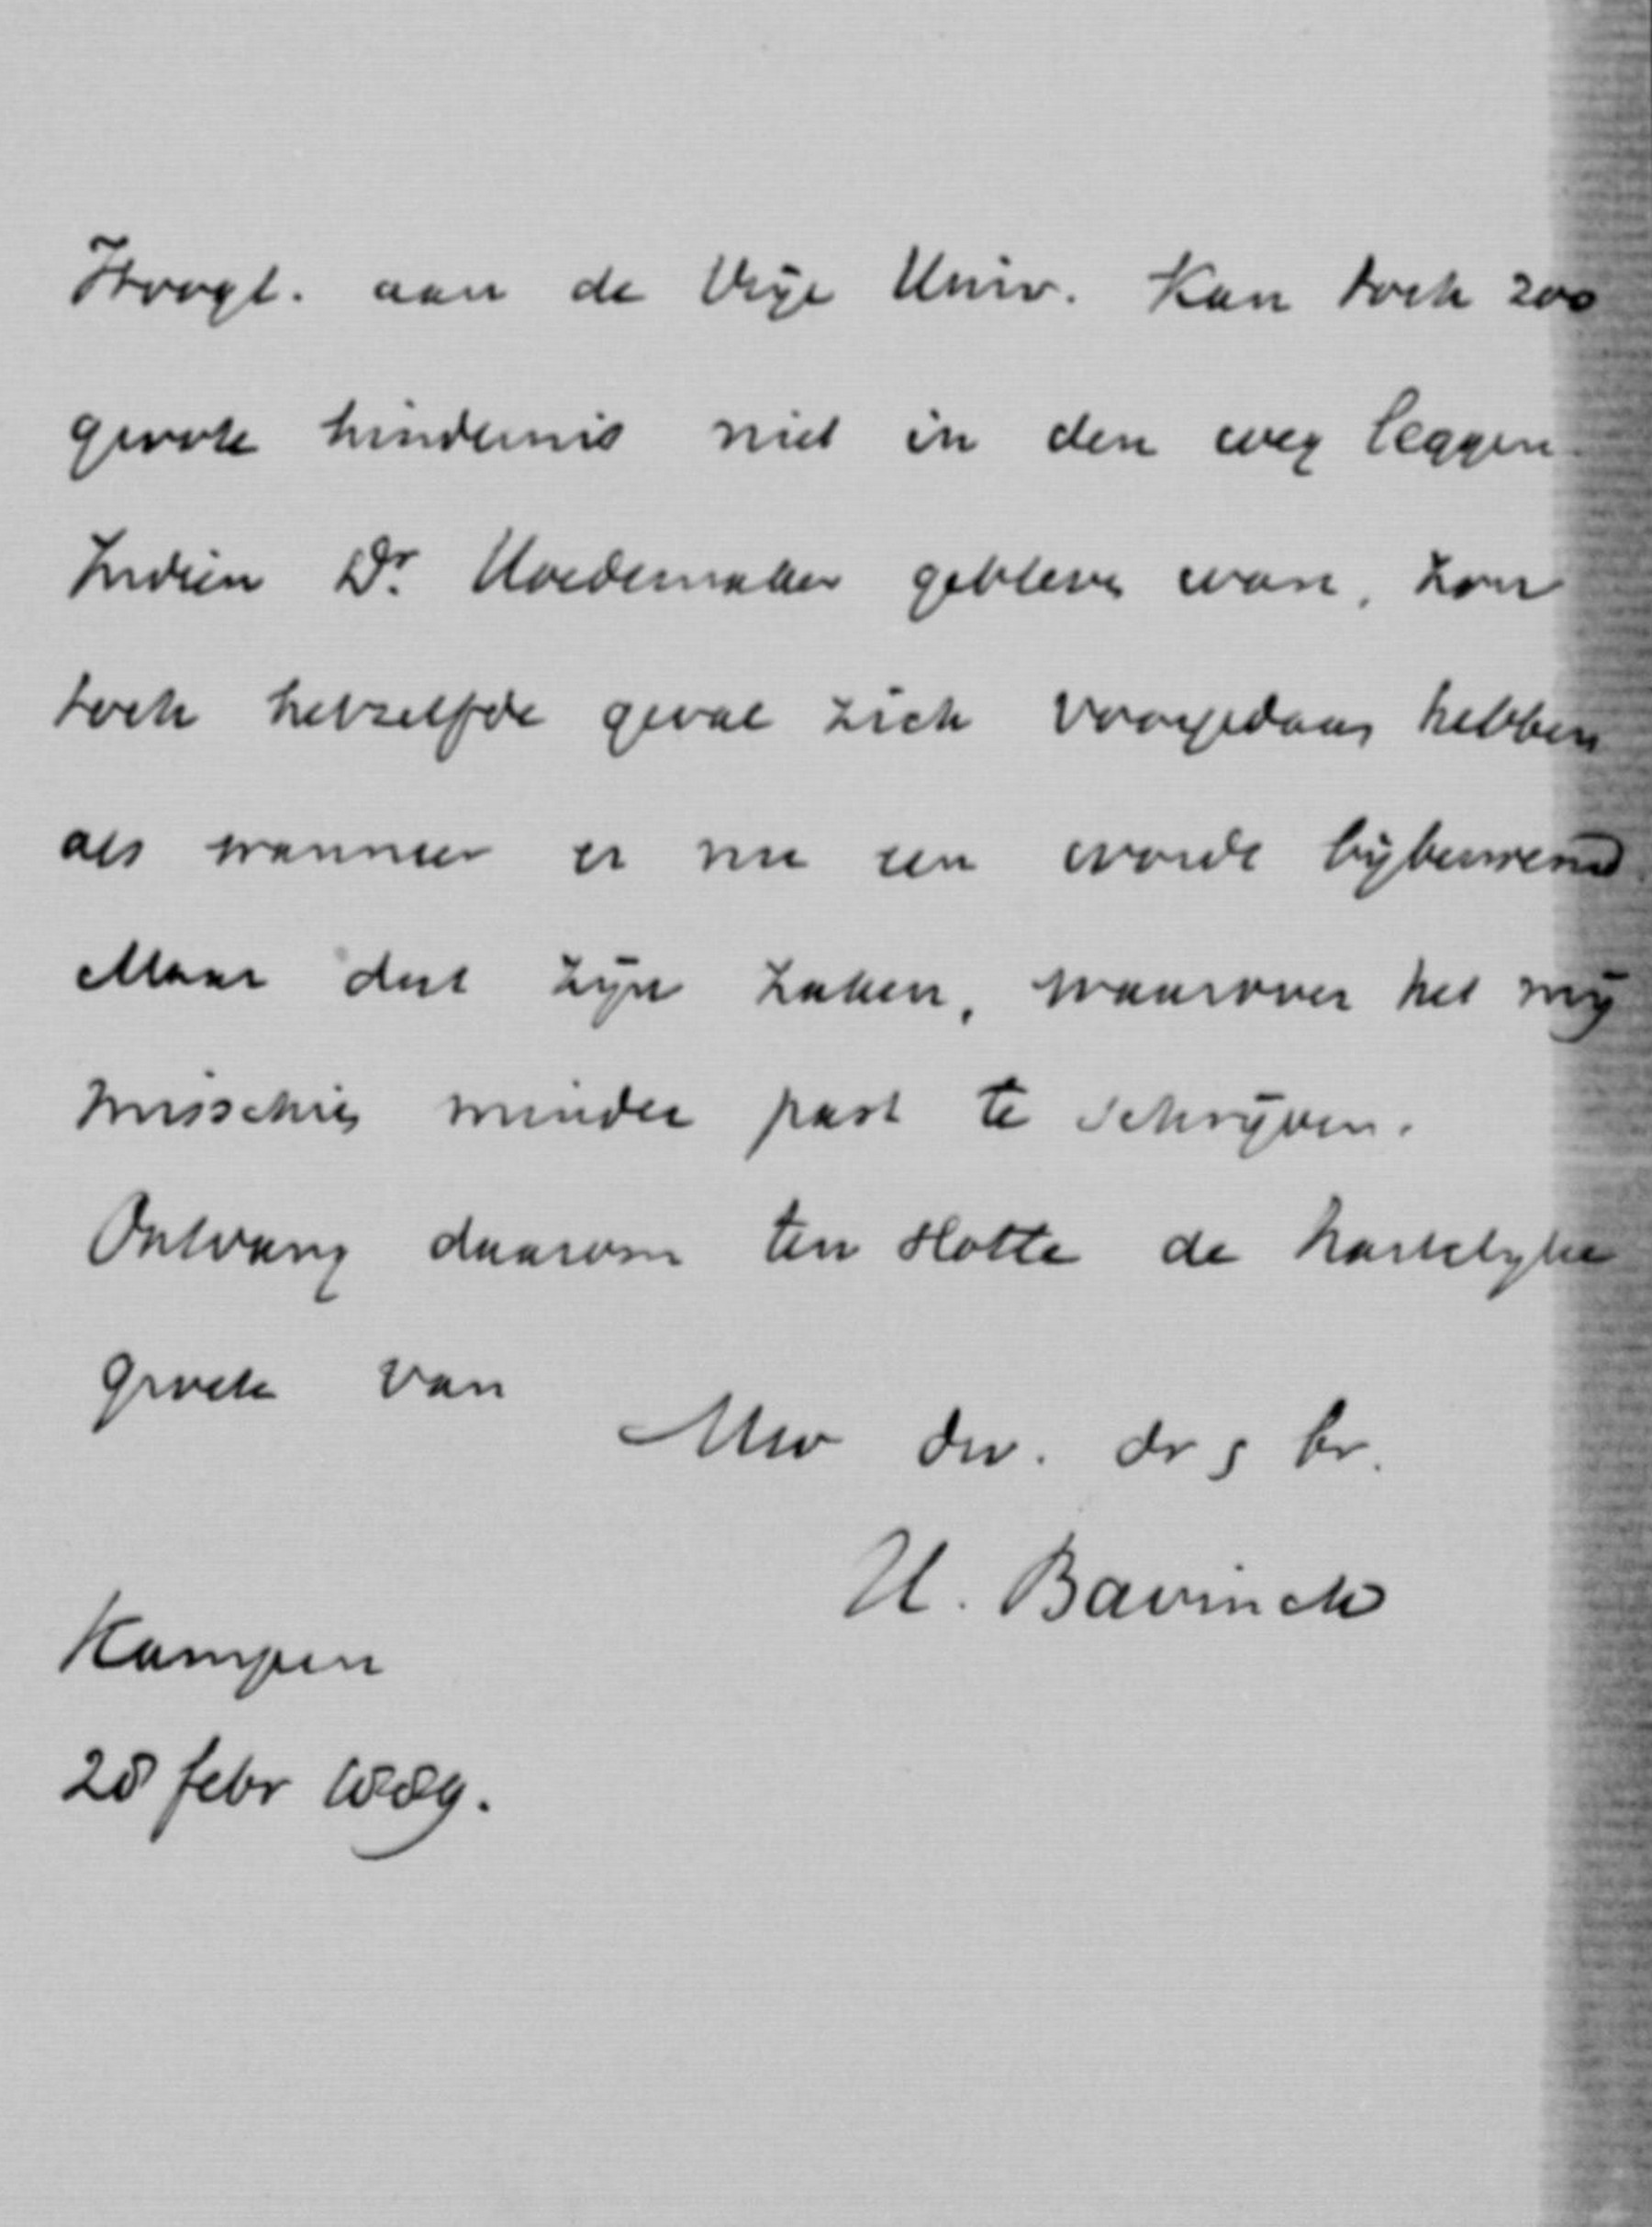 Hoogl. aan de Vrije Univ. kan toch zoo
groote hindernis niet in den weg leggen.
Indien Dr. Hoedemaker gebleven ware, zou
toch hetzelfde geval zich voorgedaan hebben
als wanneer er nu een worde bijbenoemd.
Maar dat zijn zaken, waarover het mij
misschien minder past te schrijven.
Ontvang daarom ten slotte de hartelijke
groete van
Uw dw. dr &amp; br.
H. Bavinck
Kampen
28 febr 1889.